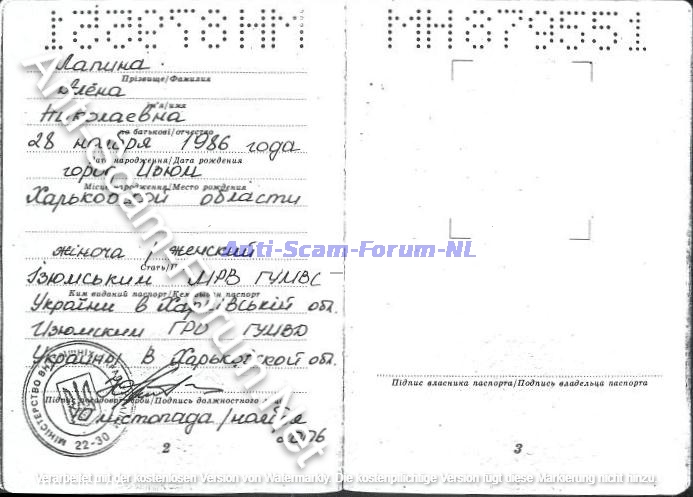 МН879551
МН879551
Лапина
Прізвище/Фамилия
Ім'я/имя
Николаевна
по батькові/отчество
28 ноября 1986 года
Дата народження/Дата рождения
город Изюм
Місце народження/Место рождения
Харьковской области
жіноча / женский
Стать/
Ізюмським МРВ ГУМВС
Ким виданий паспорт/Кем выдан паспорт
України в Харківській обл.
Изюмским ГРО ГУМВД
Украины в Харьковской обл.
Підпис посадової особи/Подпись должностного
листопада / ноября
МІНІСТЕРСТВО ВНУТРІШНІХ
22-30
2
Підпис власника паспорта/Подпись владельца паспорта
3
Anti-Scam-Forum-NL
Anti-Scam-Forum.Net
Verarbeitet mit der kostenlosen Version von Watermarkly. Die kostenpflichtige Version fügt diese Markierung nicht hinzu.